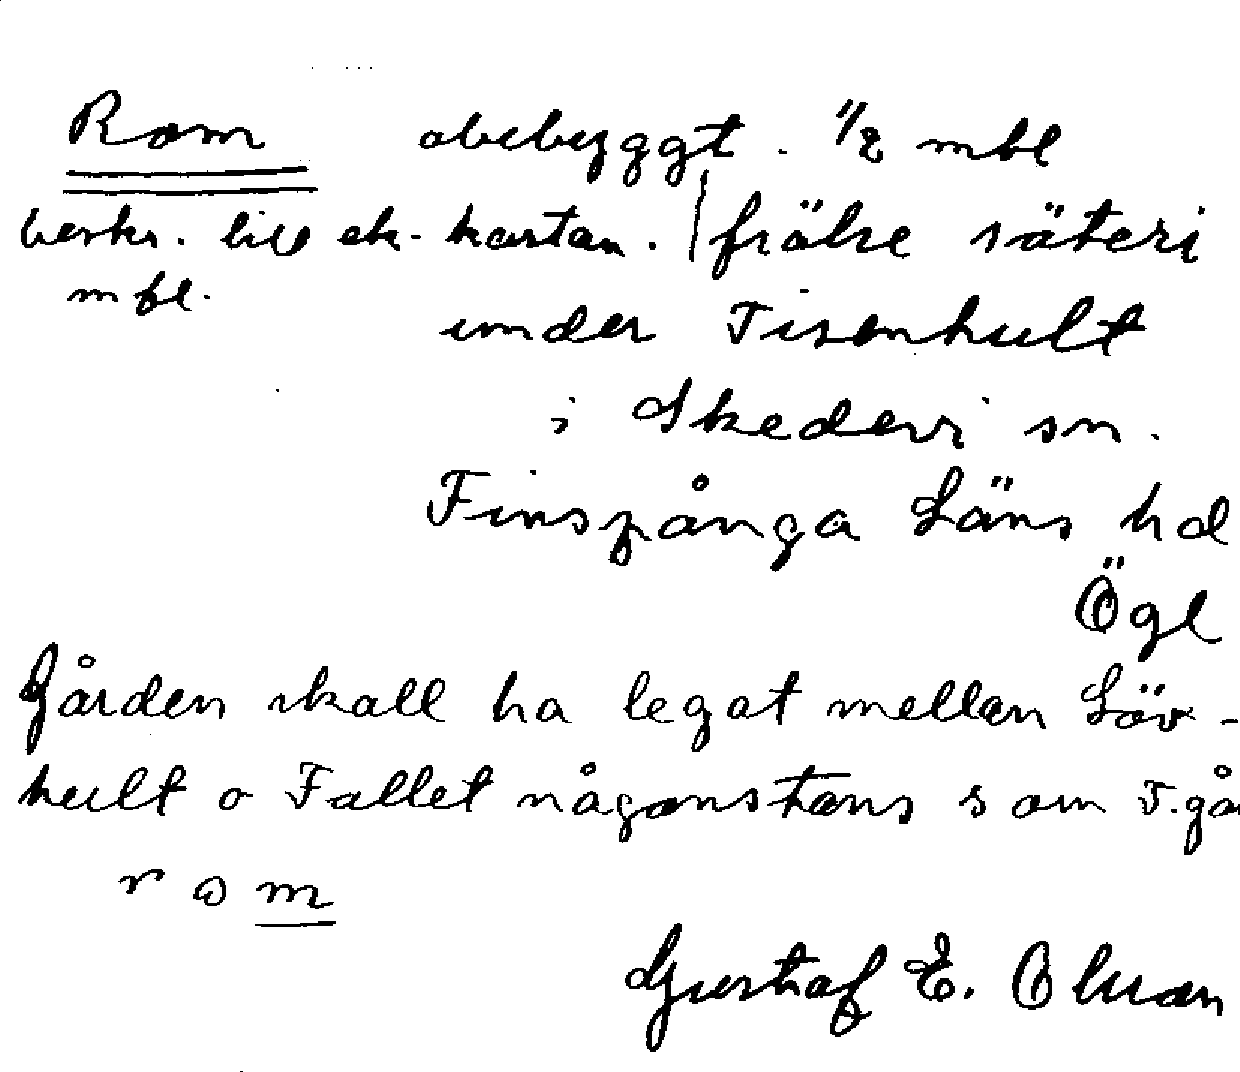 Rom obebyggt. 1/2 mtl
beskr. till ek. kartan. frälse säteri
mtl. under Tisenhult
i Skedevi sn.
Finspånga Läns hd
Ögl
Gården skall ha legat mellan Löv-
hult o Fallet någonstans som T.gå
r o m
Gustaf E. Olsson